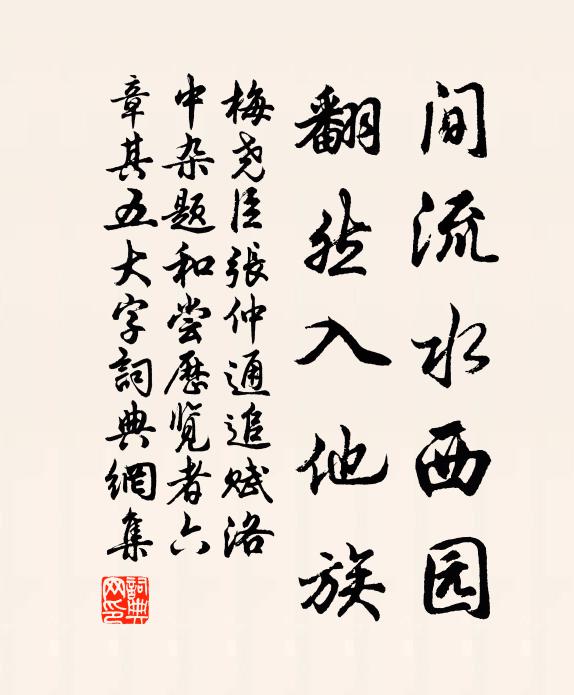 间流水西园
翻然入他族
梅尧臣張仲通追赋洛
中杂题和尝歷览者六
章其五大字詞典網集
詞典网印